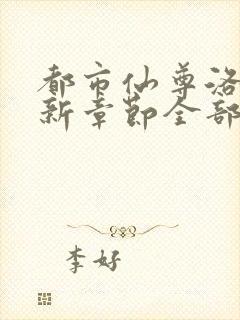 都市仙尊洛
新章节全部
李好